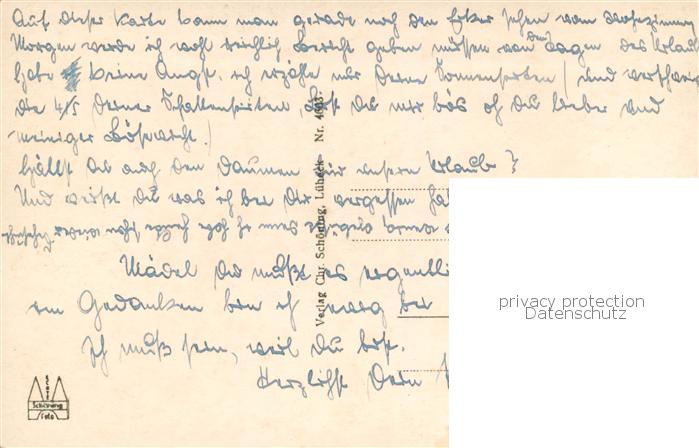 Auf dieser Karte kann man gerade noch den Erker sehen vom Wohnzimmer
Morgen werde ich wohl reichlich Bericht geben müssen von den Tagen des Urlaub
habe keine Angst, ich erzähle nur Deine Sonnenseiten (und verschweig
die 4/5 Deiner Schattenseiten, bist du mir bös oh Du lieber und
einziger Bösewicht!
Hältst du auch den Daumen für unsern Urlaub?
Und weißt Du was ich bei Dir vergessen ha
Mädel Du mußt es eigentli
in Gedanken bin ich ewig bei
Ich muß sein, weil Du bist.
Herzlichst Dein
Verlag Chr. Schöning, Lübeck Nr. 4603
Schöning
Foto
privacy protection
Datenschutz